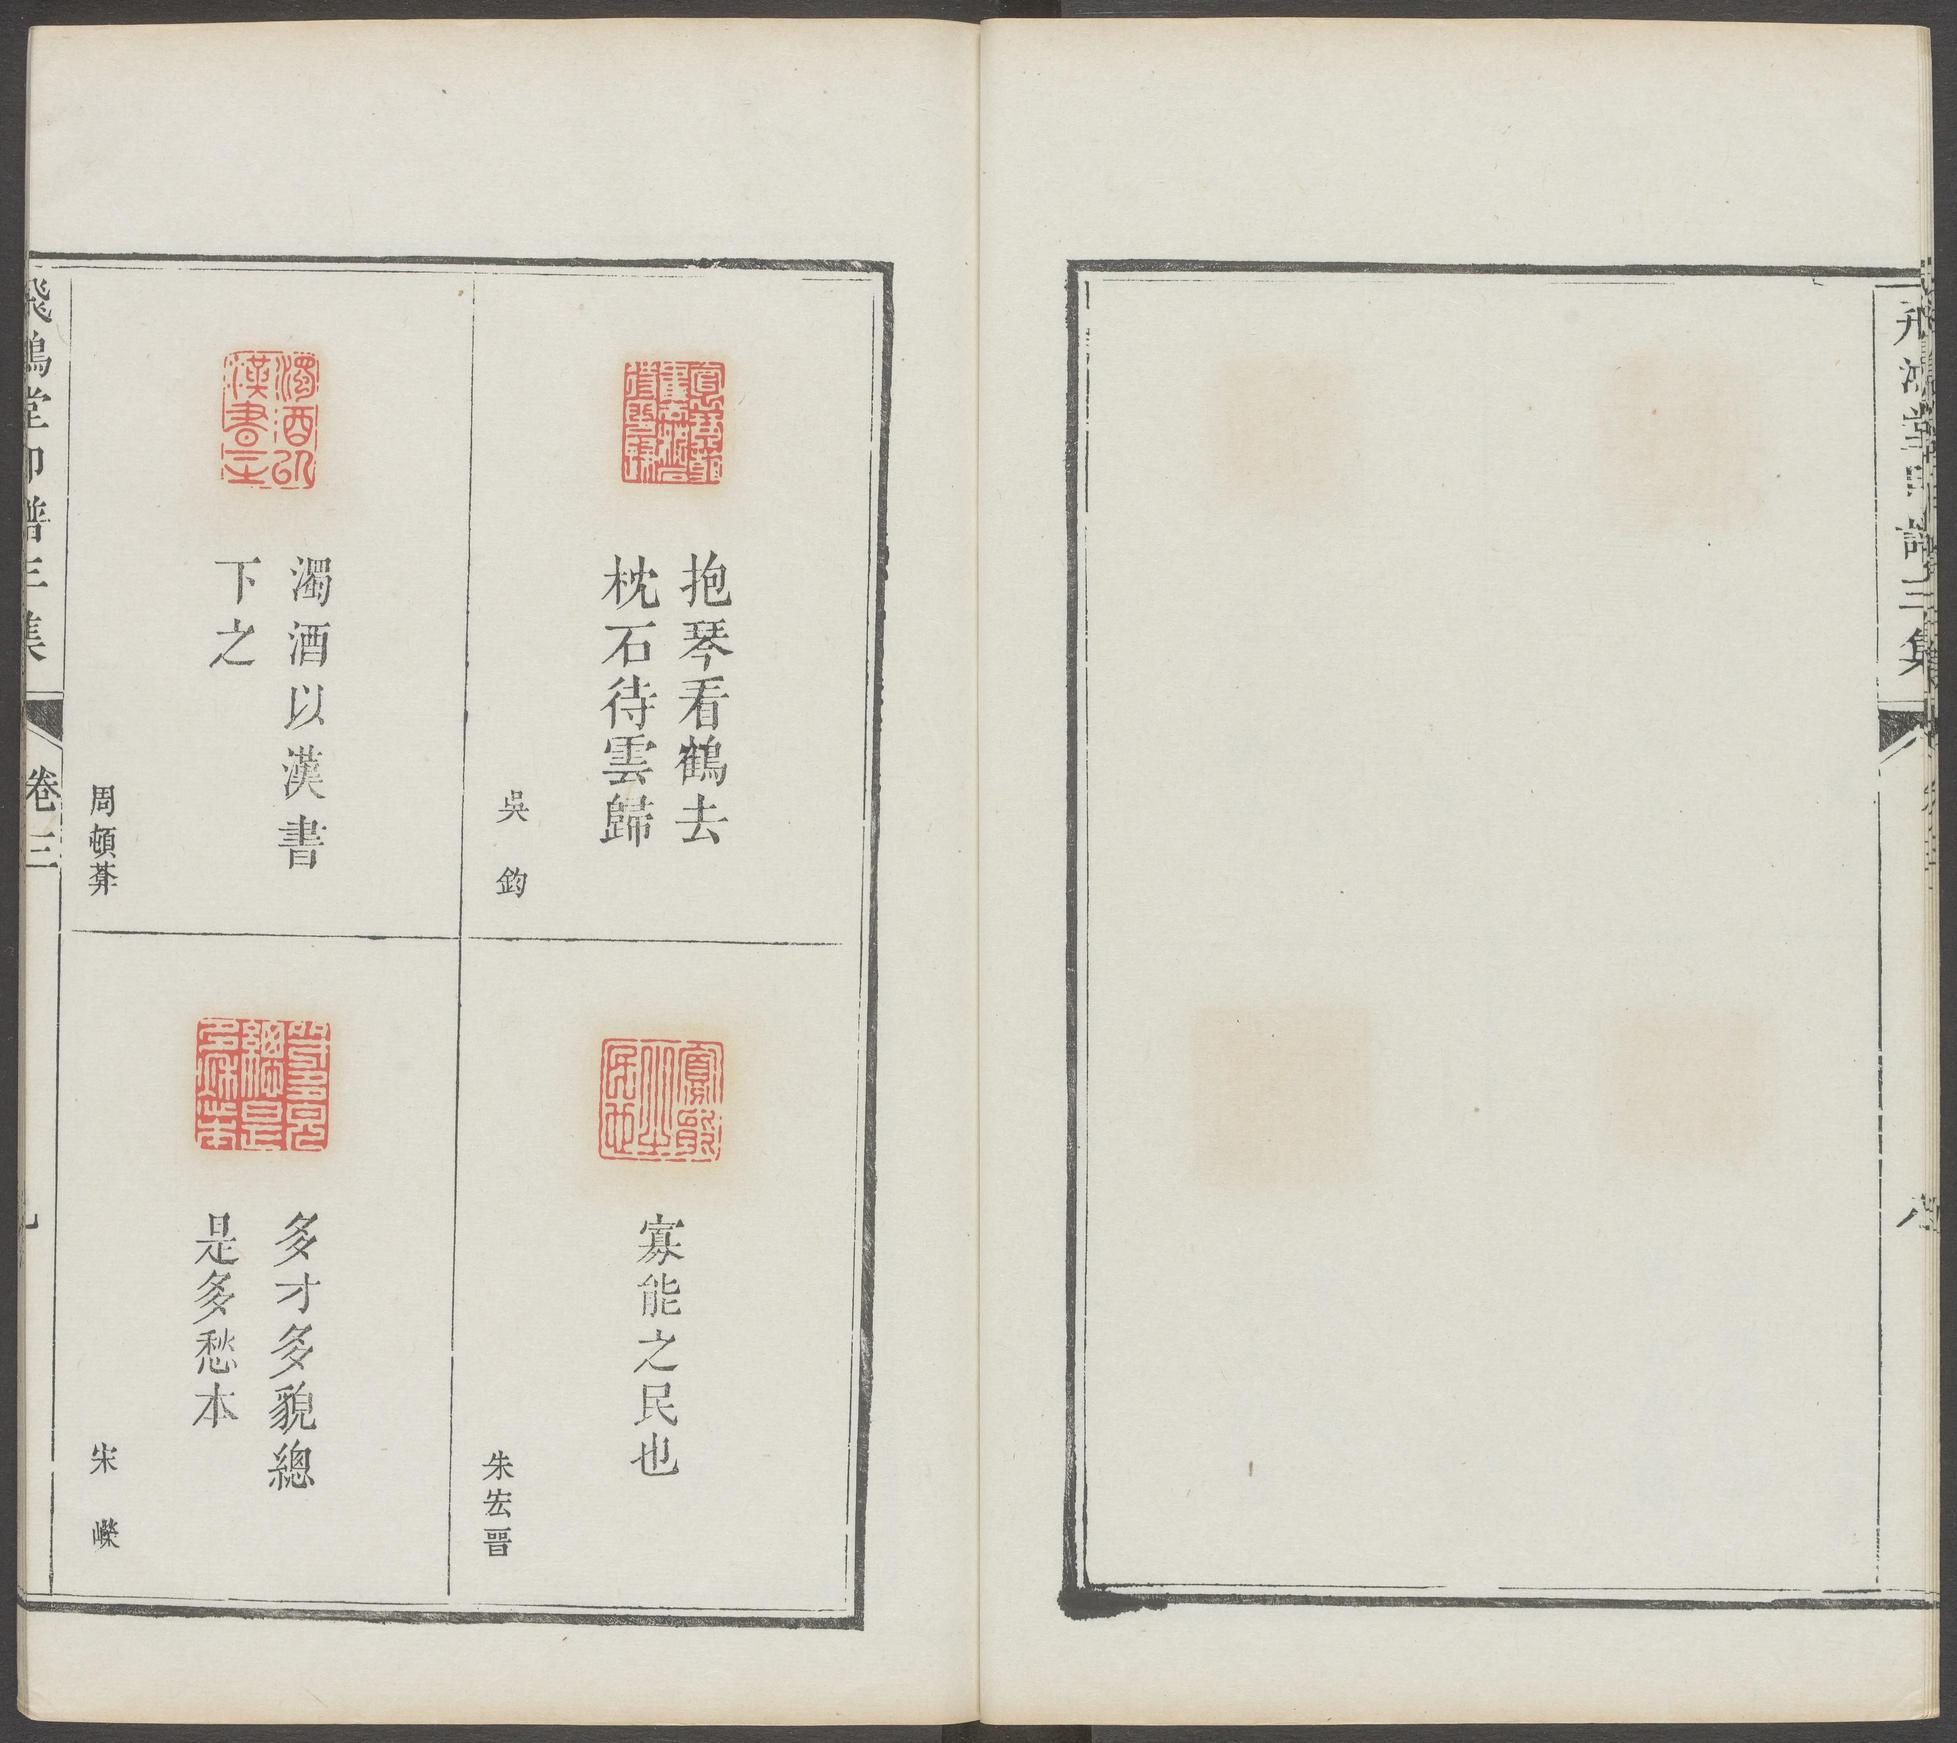 飛鴻堂印譜三集
八
抱琴看鶴去
枕石待雲歸
吳鈞
寡能之民也
朱宏晉
濁酒以漢書
下之
周頓𦮼
多才多貌總
是多愁本
宋嶸
飛鴻堂印譜三集
卷三
九